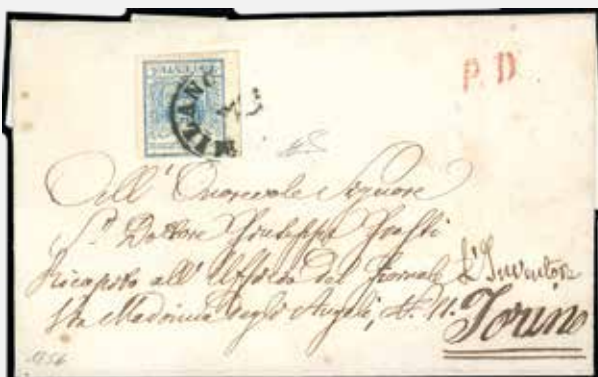 P. D
MILANO
All' Onorevole Signore
Sr. Dottore Giuseppe
Ricapito all' Ufficio del Giornale L'Inventore
Via Madonna degli Angeli, N. 11. Torino
1856